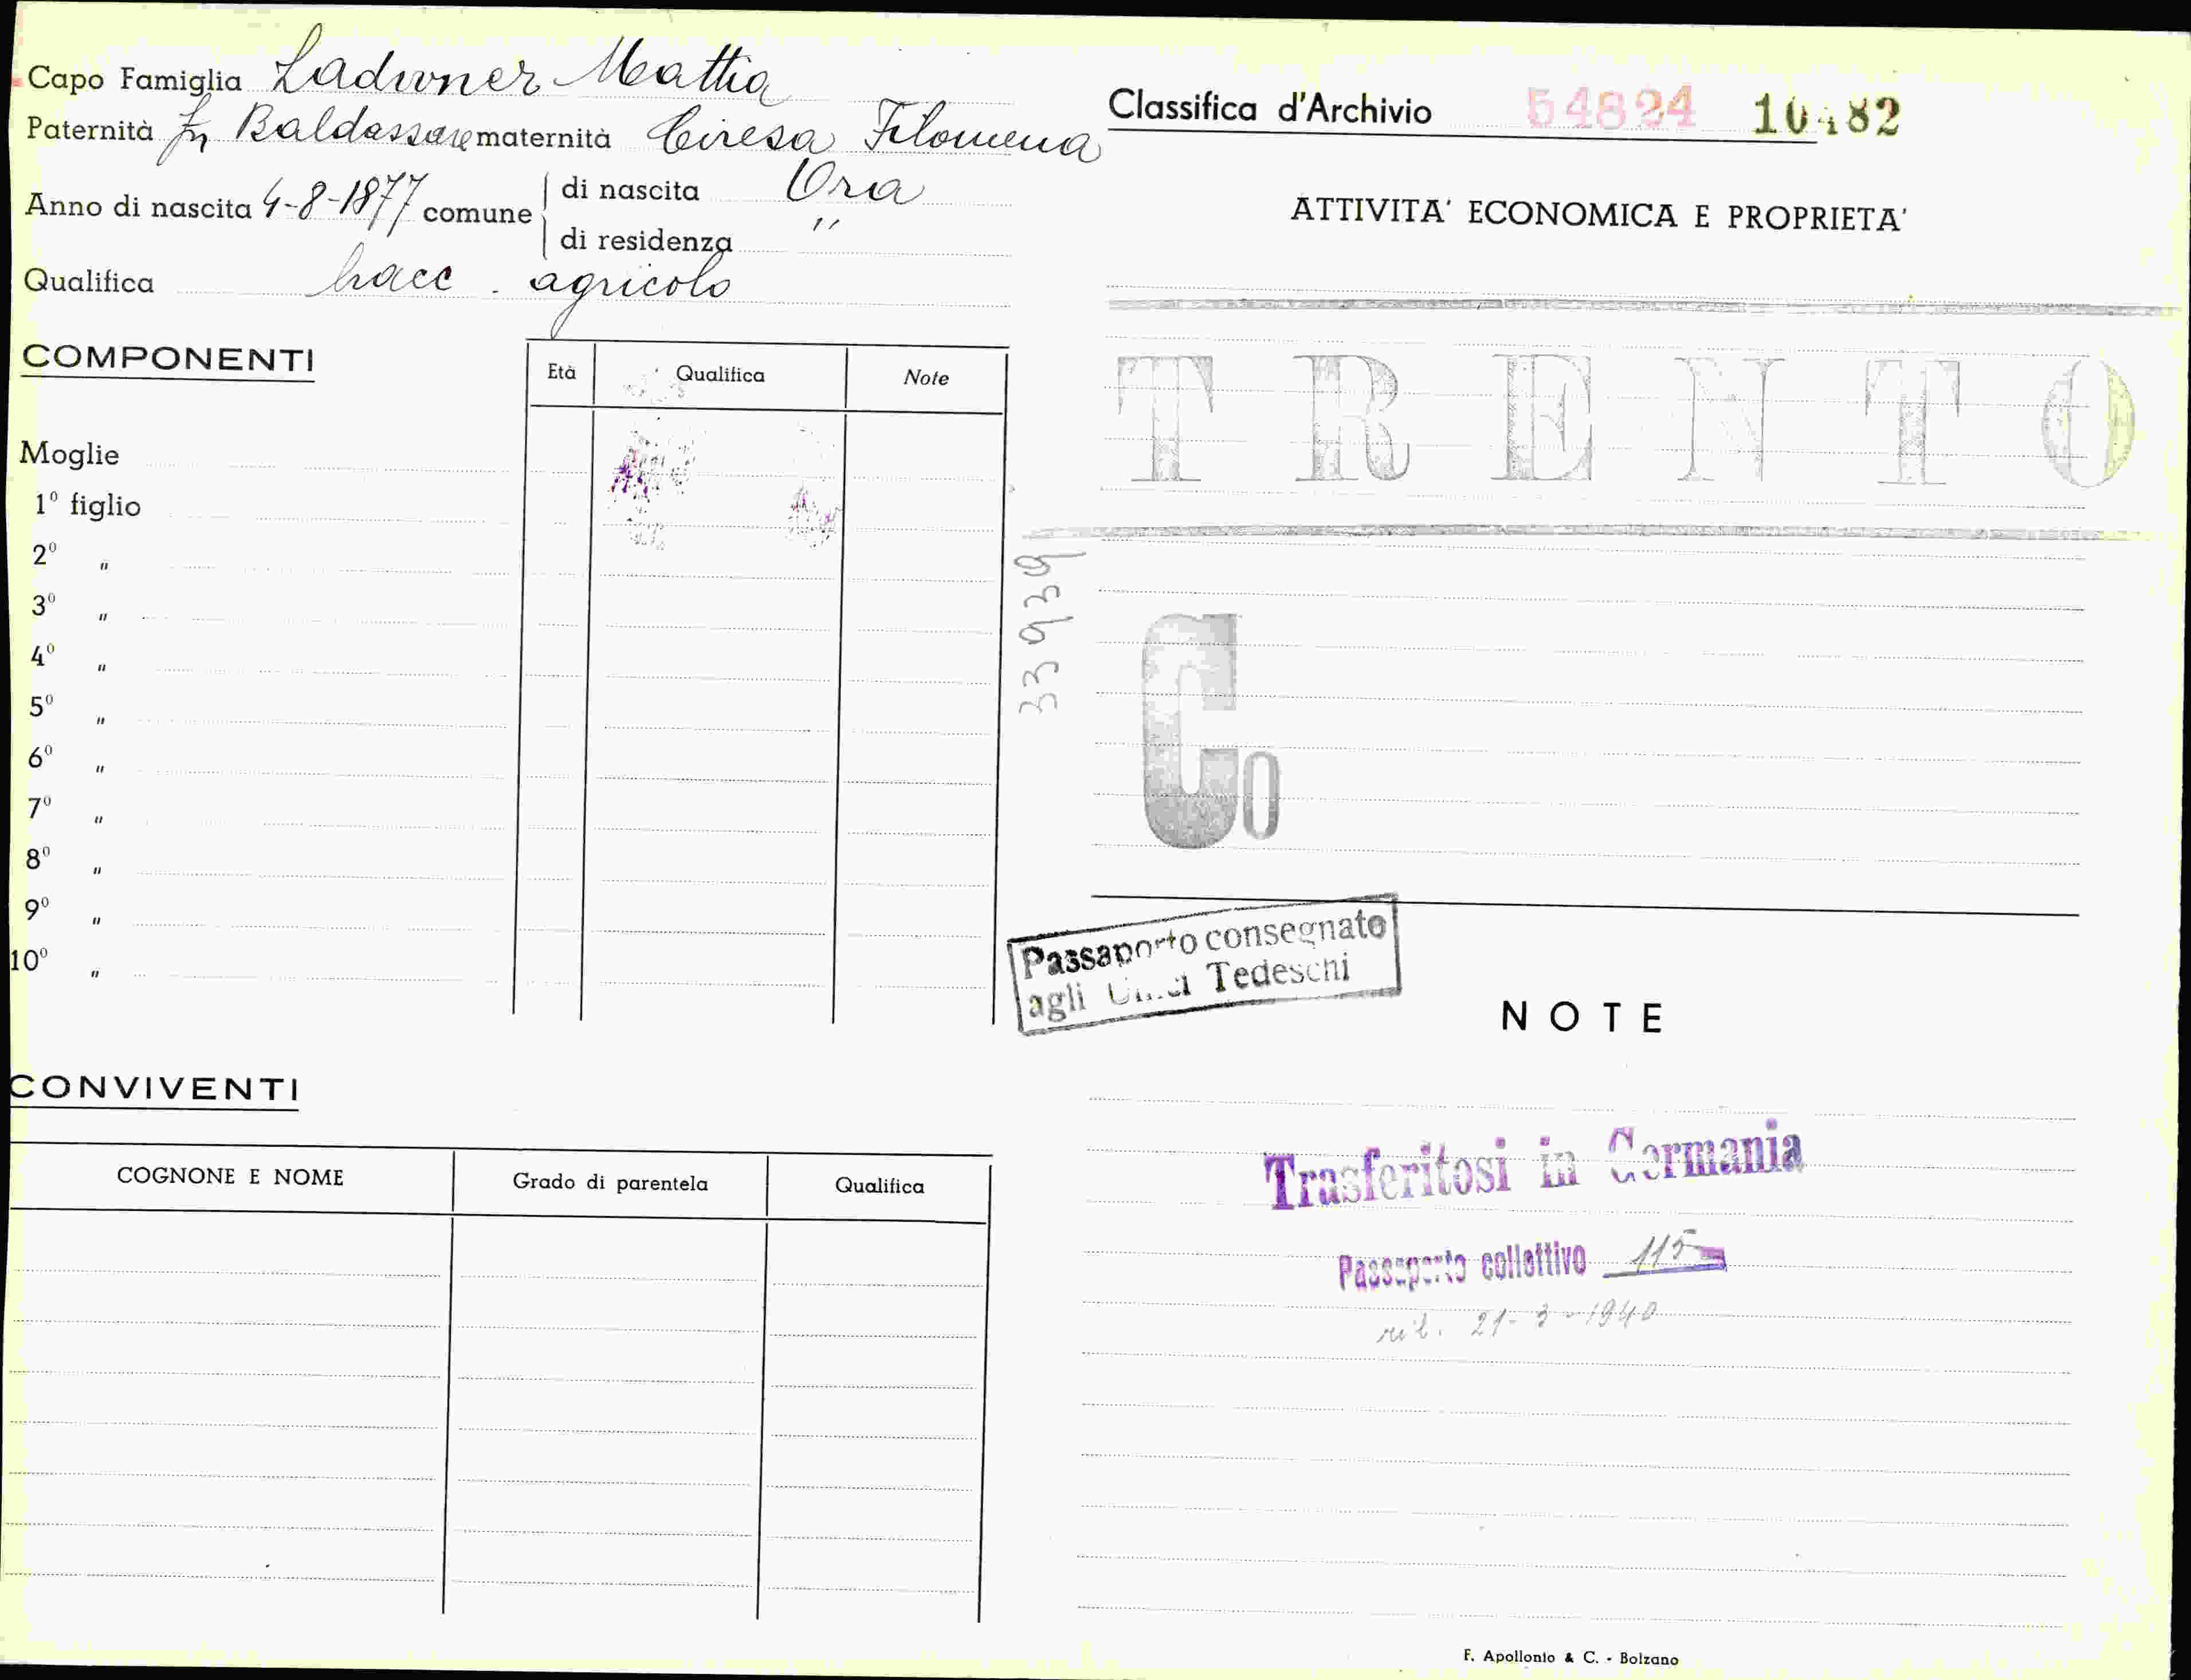 Capo Famiglia Ladurner Mattia
Paternità fu Baldassare maternità Ciresa Filomena
Anno di nascita 4-8-1877 comune di nascita Ora
di residenza "
Qualifica bracc. agricolo
COMPONENTI
Età Qualifica Note
Moglie
1º figlio
2º "
3º "
4º "
5º "
6º "
7º "
8º "
9º "
10º "
CONVIVENTI
COGNONE E NOME Grado di parentela Qualifica
33939
Classifica d'Archivio 54824 10482
ATTIVITA' ECONOMICA E PROPRIETA'
TRENTO
Co
Passaporto consegnato
agli Uffici Tedeschi
NOTE
Trasferitosi in Germania
Passaporto collettivo 115
ril. 21-3-1940
F. Apollonio & C. - Bolzano